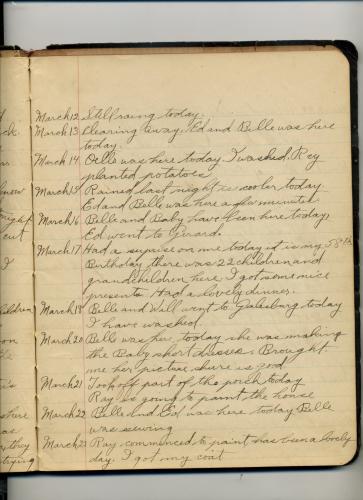 March 12 Still raing today.
March 13 Clearing away. Ed and Belle was here
today.
March 14. Belle was here today. I washed. Roy
planted potatoes
March 15 Rained last night is cooler today.
Ed and Belle was here a few minutes
March 16 Belle and Baby have been here today,
Ed went to Girard.
March 17 Had a suprise on me today it is my 58th
Birthday there was 22 children and
grandchildren here. I got some nice
presents. Had a lovely dinner.
March 18 Belle and Will went to Galesburg today
I have washed.
March 20 Belle was her today she was making
the Baby short dresses. Brought
me her picture shure is good
March 21 Took off part of the porch today
Ray is going to paint the house
March 22 Belle and Ed was here today Belle
was sewing
March 23 Ray commenced to paint has been a lovely
day. I got my coat